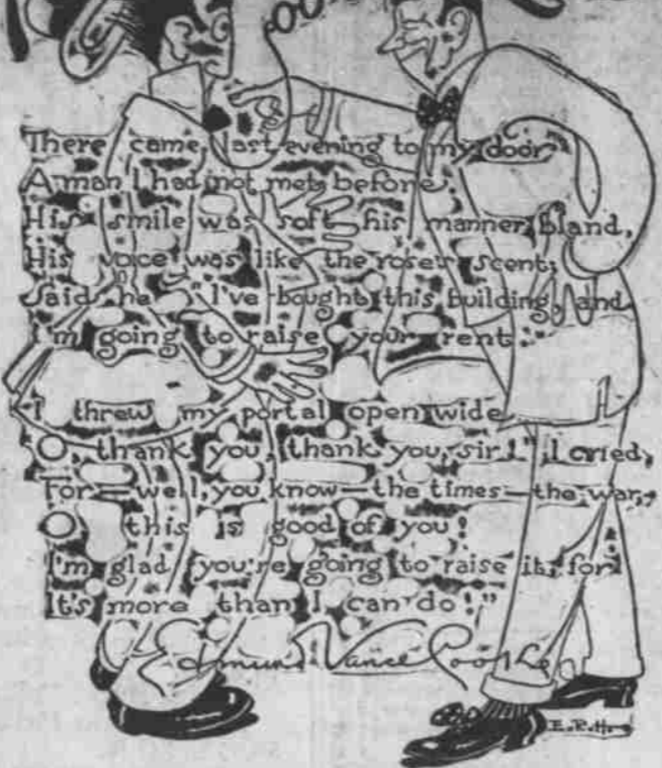 There came last evening to my door
A man I had not met before.
His smile was soft, his manner bland,
His voice was like the roses' scent;
Said he, "I've bought this building, and
I'm going to raise your rent."
I threw my portal open wide
"O, thank you, thank you, sir!" I cried,
"For—well, you know—the times—the war,
O this is good of you!
I'm glad you're going to raise it, for
It's more than I can do!"
Edmund Vance Cooke